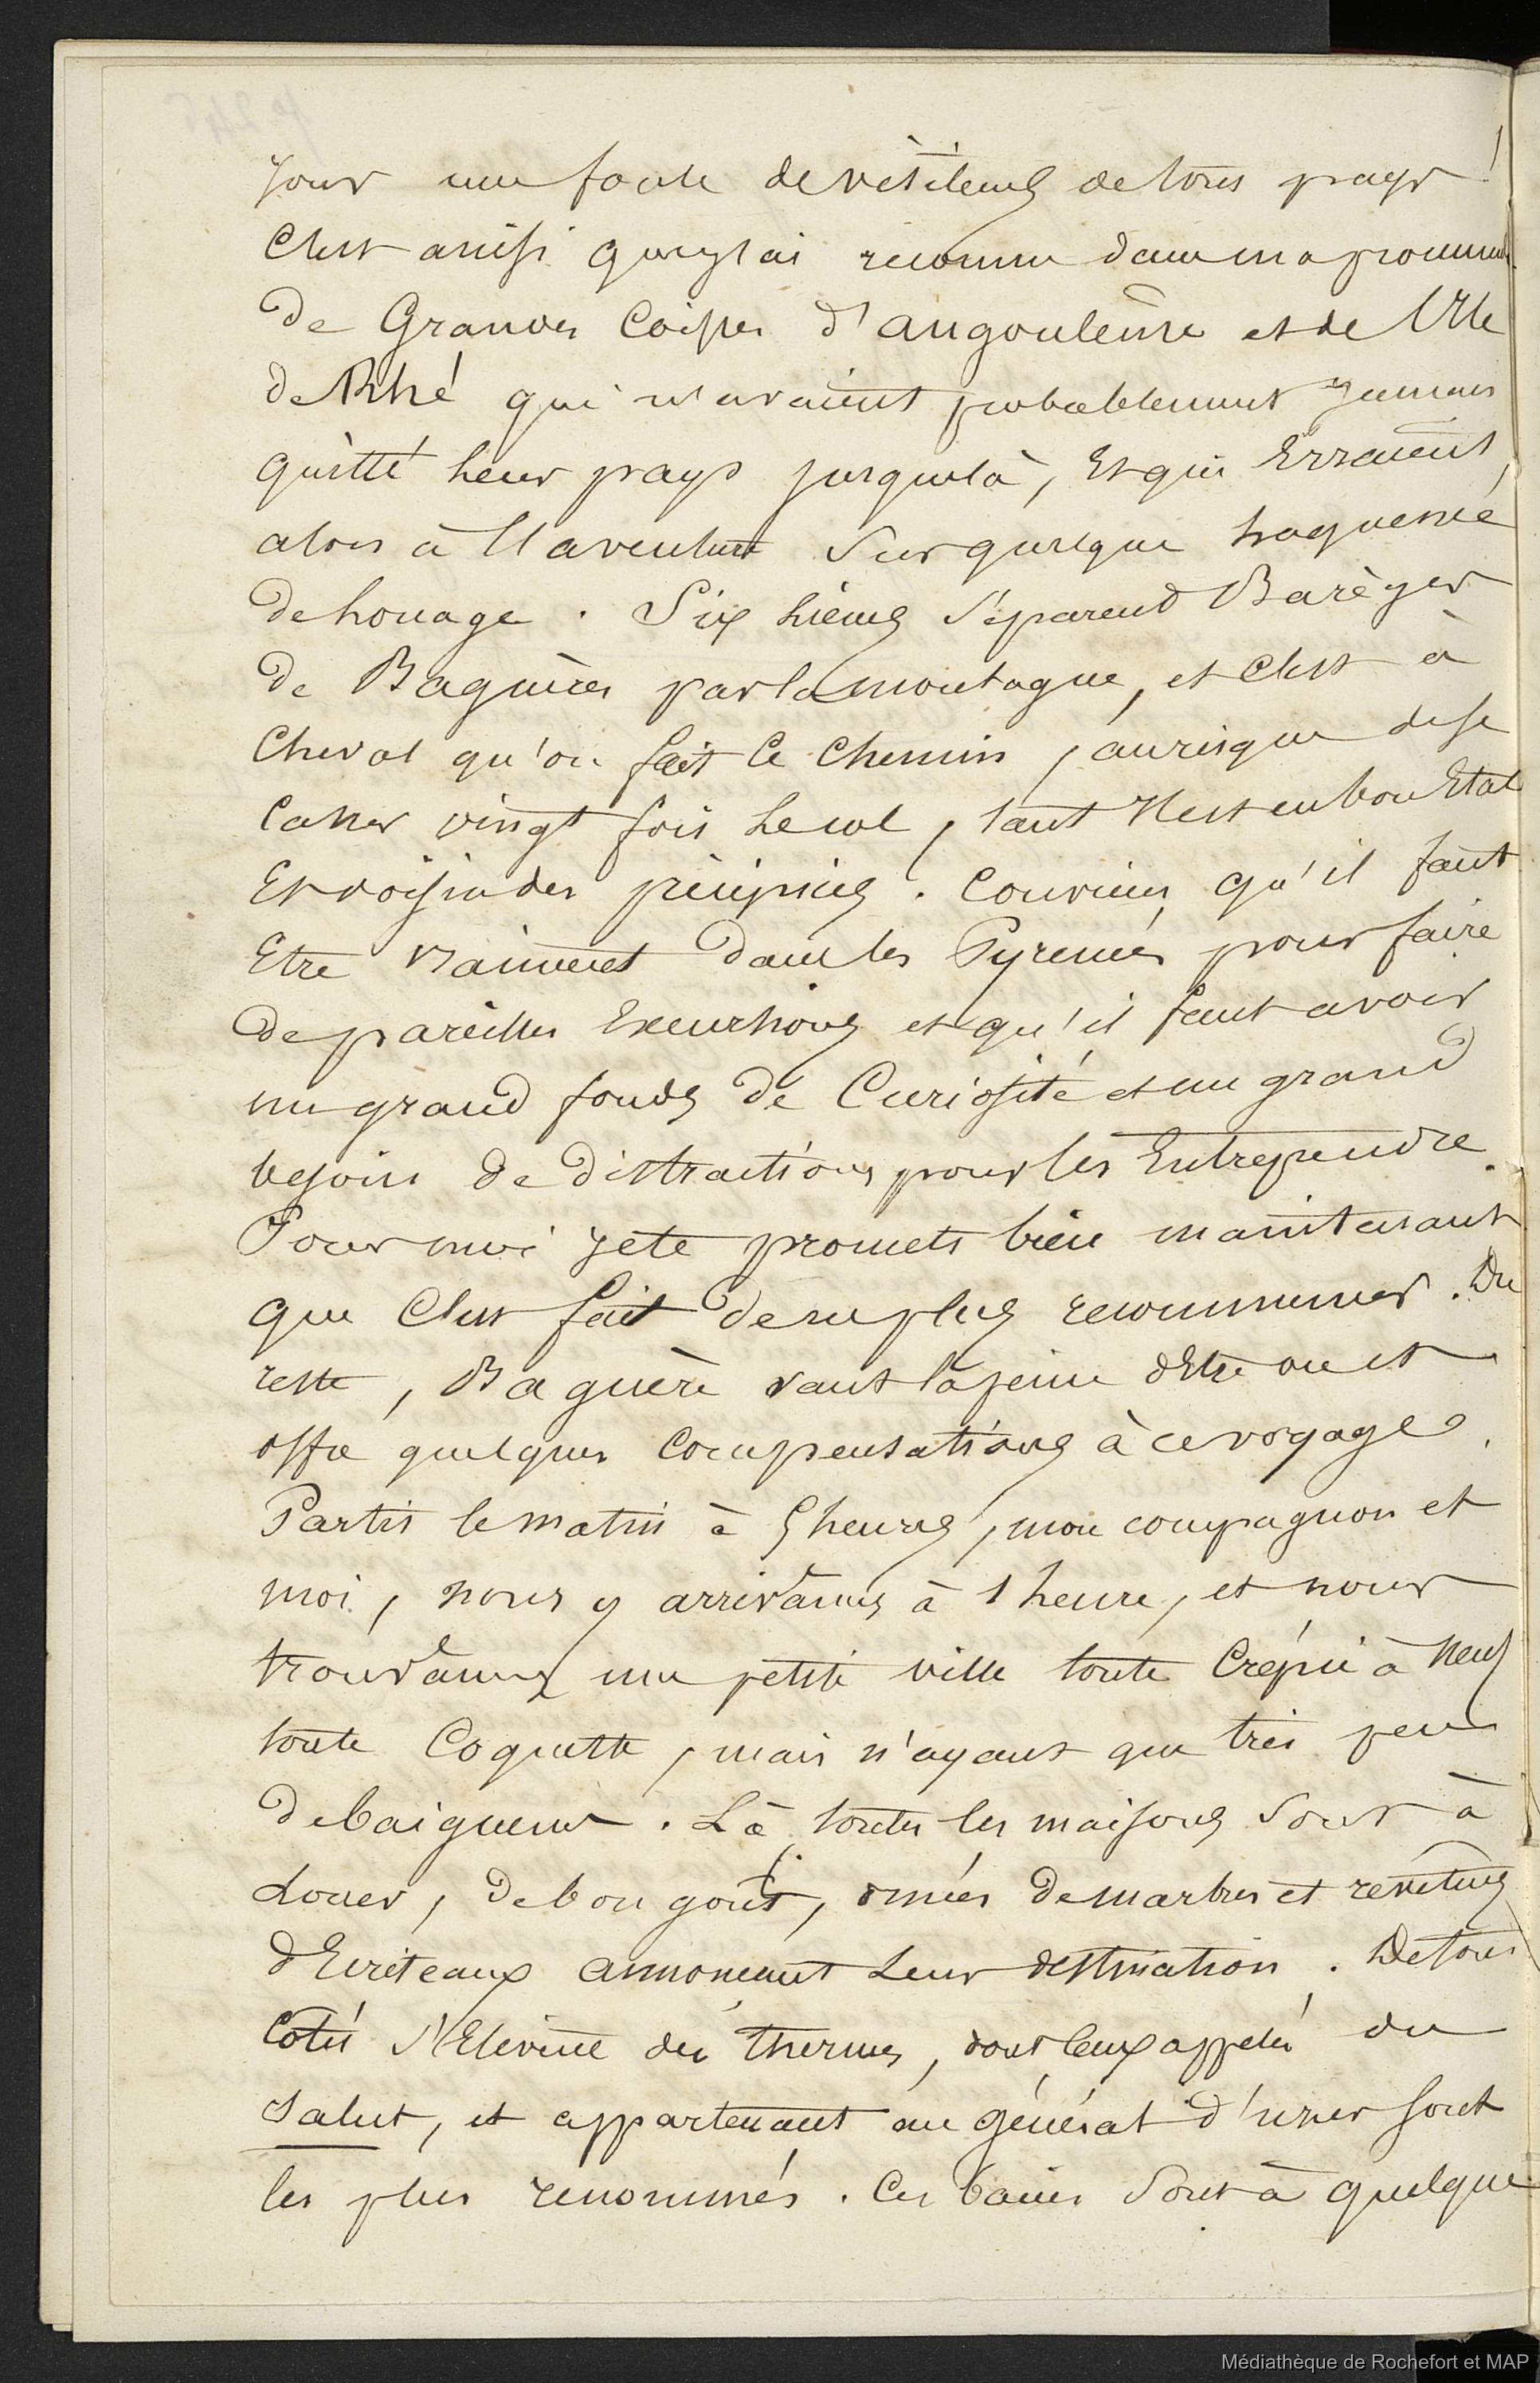 jour une foule de visiteurs de tous pays !
C'est ainsi que j'ai reconnu dans ma promenade
de Grandes Coiffes d'angoulême et de l'Ile
de Rhé qui n'avaient probablement jamais
quitté leur pays jusque là, Et qui Erraient,
alors à l'aventure Sur quelque haquenée
de louage. Six lieues Séparent Barèges
de Bagnères par la montagne, et C'est à
Cheval qu'on fait le Chemin, au risque de se
Casser vingt fois le col, tant Il est en bon Etat
Et voisin des précipices. Conviens qu'il faut
Etre vraiment dans les Pyrenées pour faire
de pareilles Excursions et qu'il faut avoir
un grand fonds de Curiosité et un grand
besoin de distractions pour les Entreprendre.
Pour moi je te promets bien maintenant
que C'est fait de ne plus recommencer. Du
reste, Bagnère vaut la peine d'Etre vue et
offre quelques Compensations à ce voyage.
Partis le matin à 5 heures, mon compagnon et
moi, nous y arrivâmes à 1 heure, et nous
trouvâmes une petite ville toute Crépie à Neuf
toute Coquette, mais n'ayant que très peu
de baigneurs. Là, toutes les maisons Sont à
Louer, de bon goût, ornées de marbres et revêtues
d'Ecriteaux annoncant Leur destination. De tous
Cotés S'Elèvent des Thermes, dont Ceux appelés du
Salut, et appartenant au général d'          sont
les plus renommés. Ces bains Sont à quelque
Médiathèque de Rochefort et MAP